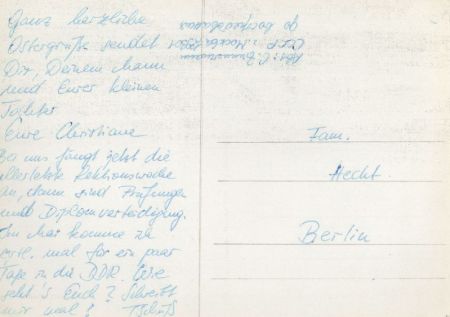 Ganz herzliche
Ostergrüße sendet
Dir, Deinem Mann
und Eurer kleinen
Tochter
Eure Christiane
Bei uns fängt jetzt die
allerletzte Lektionswoche
an, dann sind Prüfungen
und Diplomverteidigung.
Im Mai komme ich
evtl. mal für ein paar
Tage in die DDR. Wie
geht's Euch? Schreibt
mir mal! Tschüß
Abs.: C.
Moskau
Fam.
Hecht.
Berlin